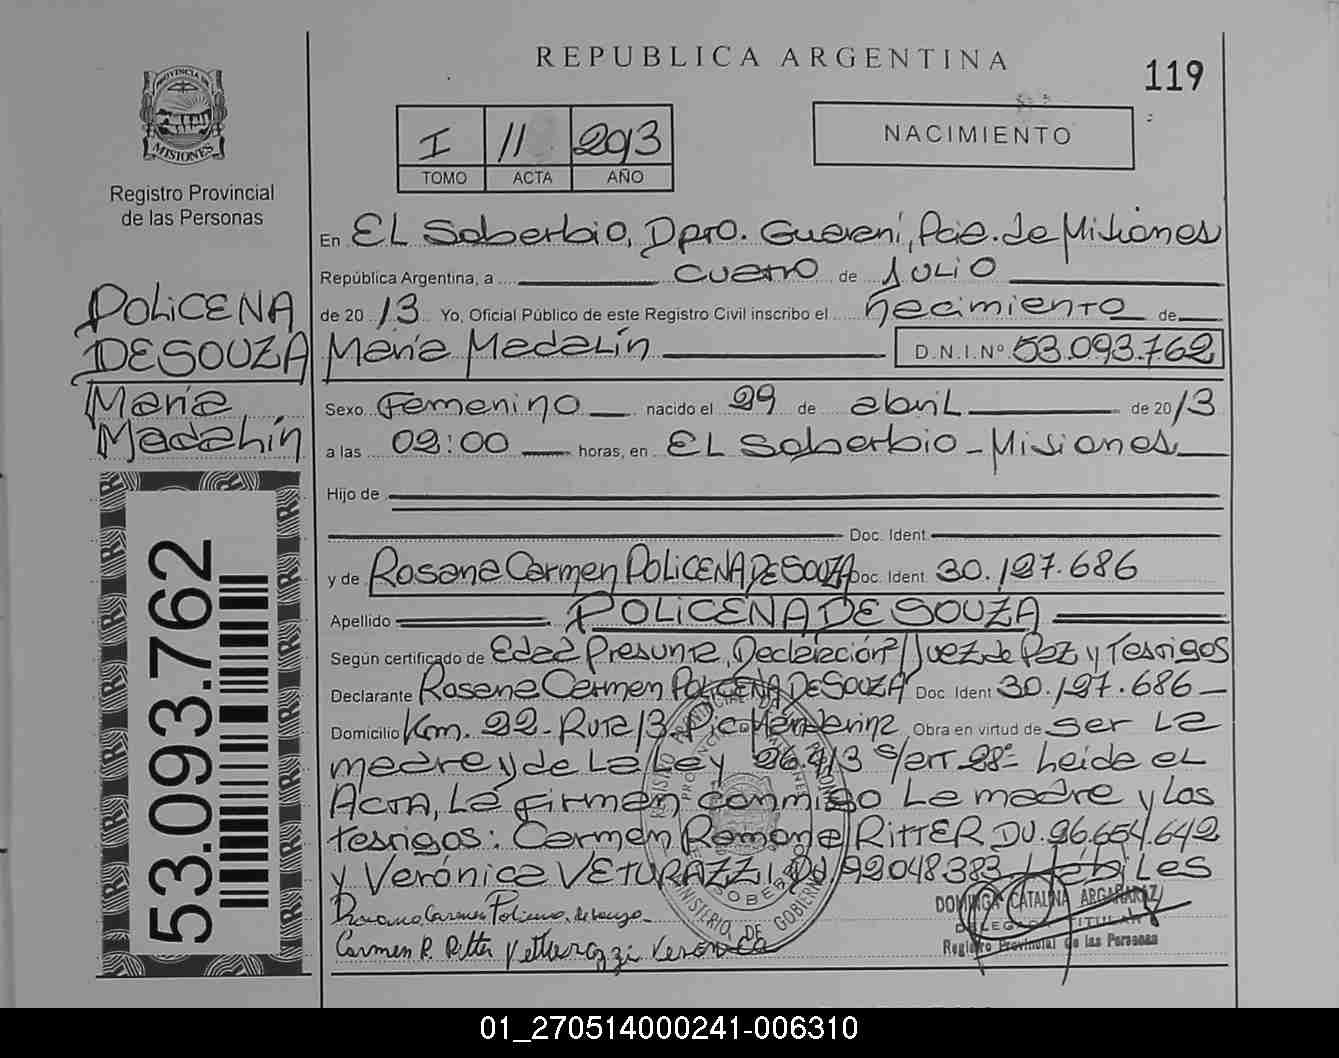 REPUBLICA ARGENTINA
119
PROVINCIA DE
MISIONES
Registro Provincial
de las Personas
I 11 2013
TOMO ACTA AÑO
NACIMIENTO
En EL Soberbio, Dpto. Guaraní, Pcia. de Misiones
República Argentina, a cuatro de JULIO
de 2013 Yo, Oficial Público de este Registro Civil inscribo el nacimiento de
María Madalín D.N.I.Nº 53.093.762
POLICENA
DE SOUZA
María
Madalín
Sexo Femenino nacido el 29 de abril de 2013
a las 02:00 horas, en EL Soberbio - Misiones
Hijo de
Doc. Ident.
y de Rosana Carmen POLICENA DE SOUZA Doc. Ident. 30.127.686
Apellido POLICENA DE SOUZA
Según certificado de Edad Presunta, Declaración Juez de Paz y Testigos
Declarante Rosana Carmen POLICENA DE SOUZA Doc. Ident 30.127.686
Domicilio Km. 22 - Ruta 13 Obra en virtud de ser La
madre y de La Ley 26.413 s/art 28º Leída el
Acta, La firman conmigo La madre y Los
testigos: Carmen Ramona RITTER DU. 26.654.642
y Verónica VETURAZZI DU 92.048.383 Hábiles
Carmen R. Ritter Vetturazzi Veronica
DOMINGA CATALINA ARGAÑARAZ
DELEGADA TITULAR
Registro Provincial de las Personas
MINISTERIO DE GOBIERNO
SOBERBIO
53.093.762
01_270514000241-006310